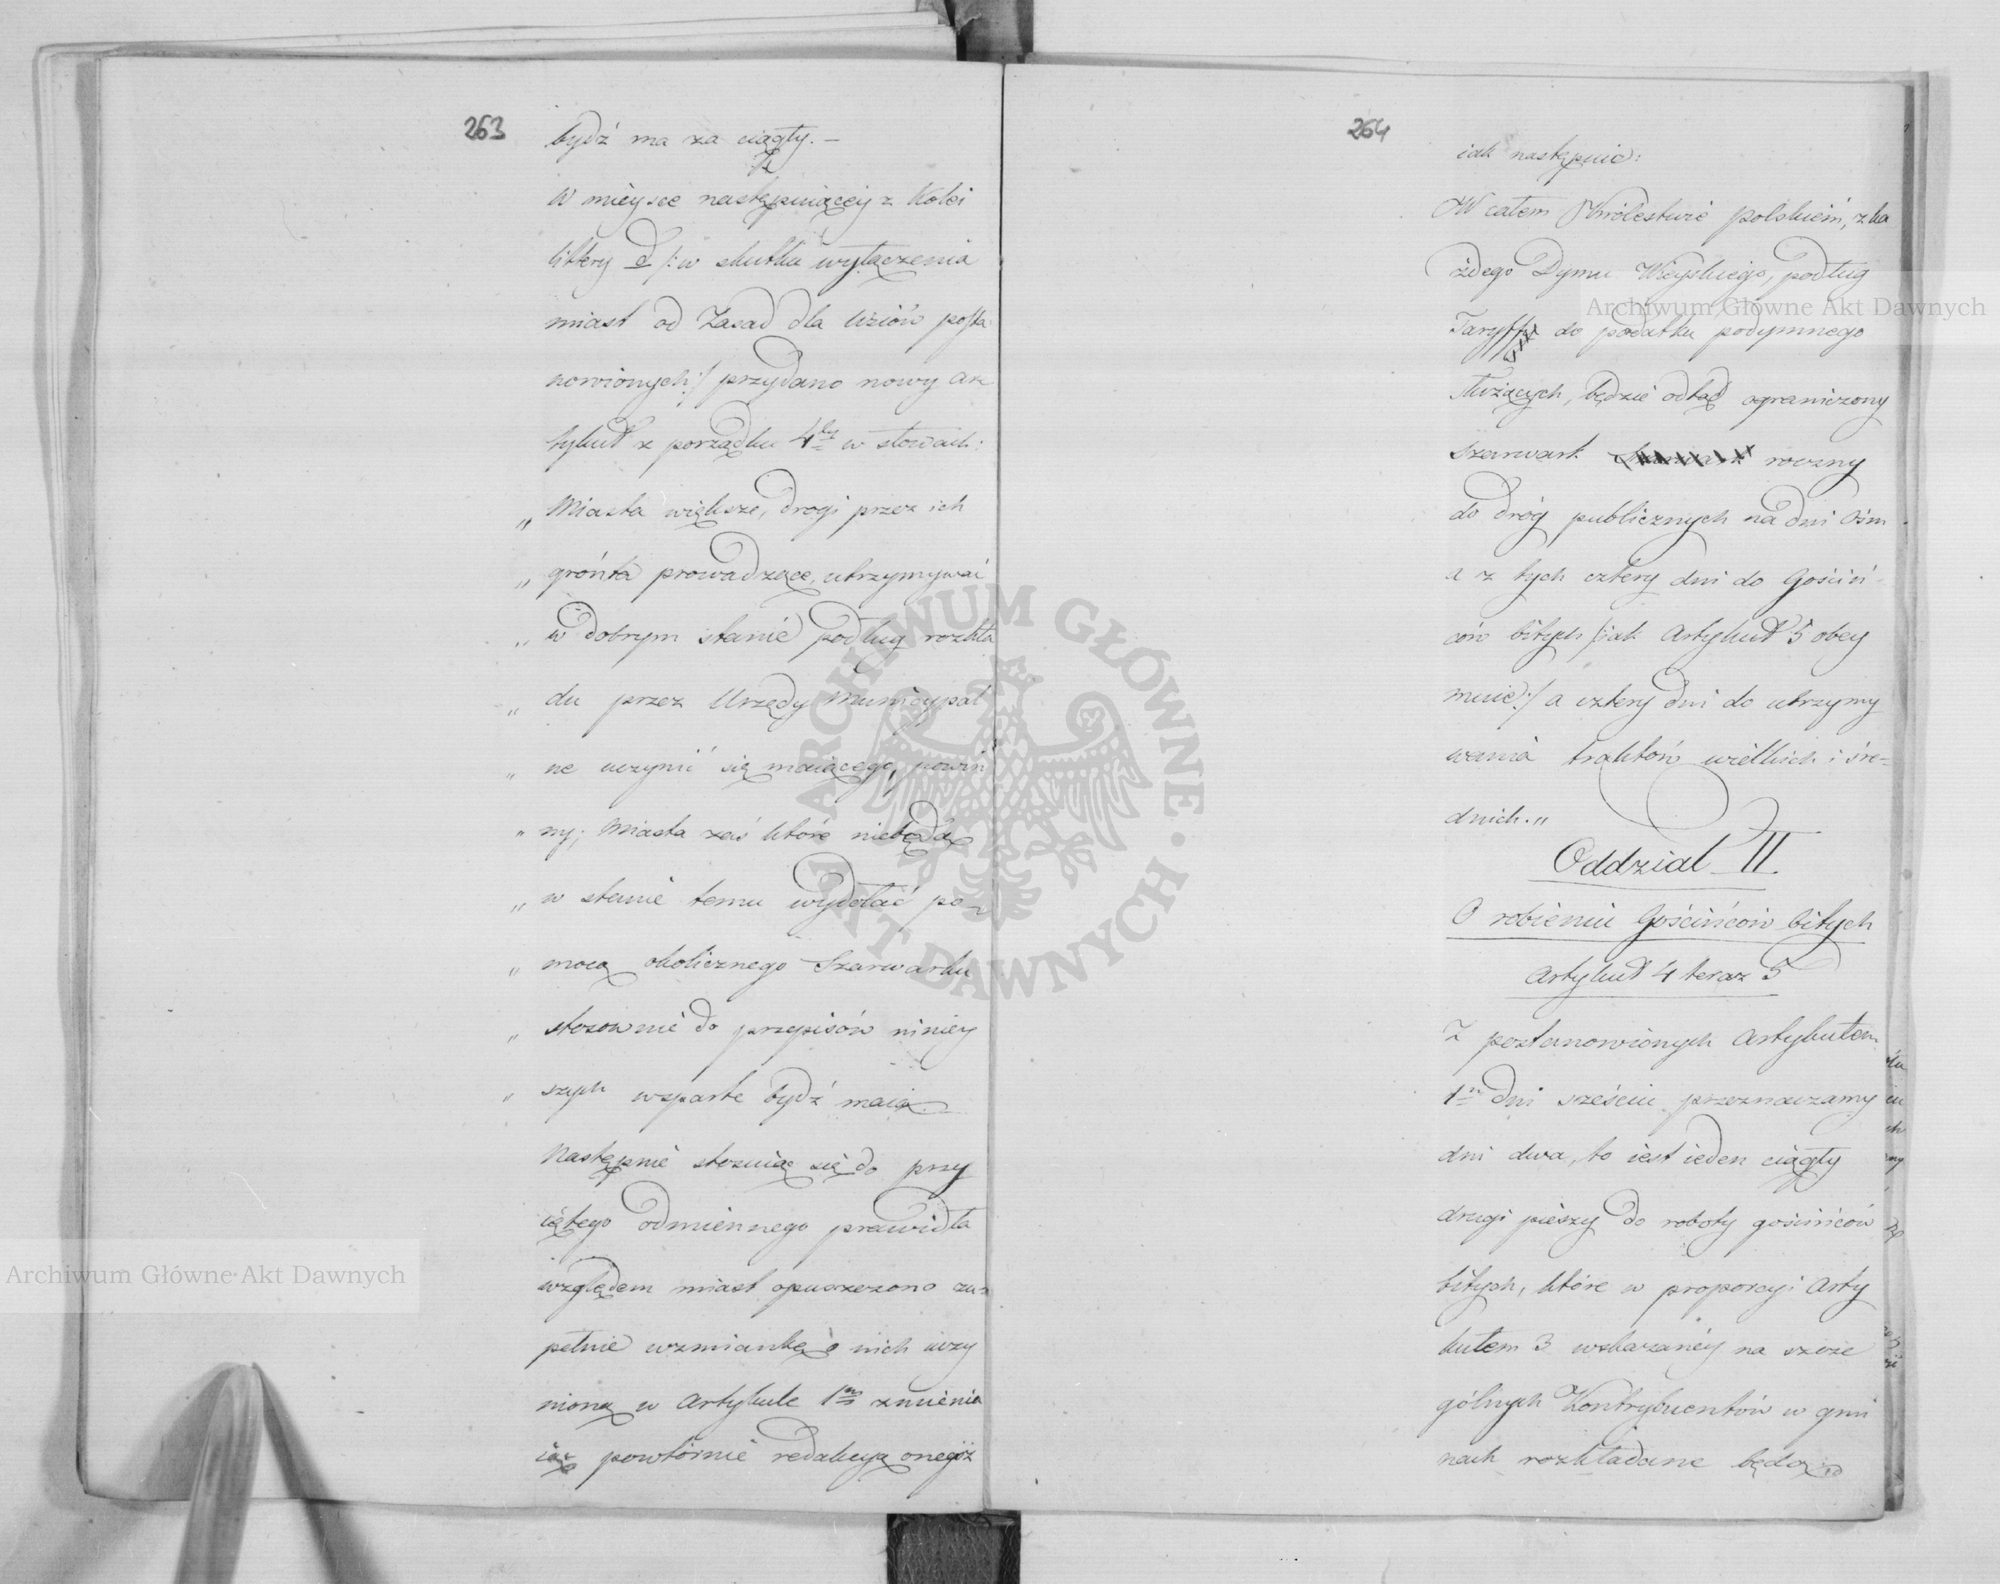 263
bydź ma za ciągły. —
W mieysce następuiącéy z Kolei
littery d /: w skutku wyłączenia
miast od Zasad dla Wsiów posta
nowionych :/ przydano nowy ar
tykuł z porządku 4ty w słowach:
„ Miasta większe, drogi przez ich
„ grónta prowadzące, utrzymywać
„ w dobrym stanie podług rozkła
„ du przez Urzędy Municypal
„ ne uczynić się maiącego, powin
„ ny; Miasta zaś które niebędą
„ w stanie temu wydołać po-
„ mocą okolicznego Szarwarku
„ stosownie do przepisów niniey
„ szych wsparte bydź maią.
Następnie stosuiąc się do przy
iętego odmiennego prawidła
względem miast opuszczono zu-
pełnie wzmiankę o nich uczy
nioną w Artykule 1m zmienia
iąc powtórnie redakcyą onegóż
264
iak następuie:
W całem Królestwie polskiém, z ka
żdego Dymu Wieyskiego, podług
Taryff do podatku podymnego
służących, będzie odtąd ograniczony
szarwark roczny
do dróg publicznych na dni Ośm
a z tych cztery dni do Gościń-
ców bitych /: iak Artykuł 5 obey
muie :/ a cztery dni do utrzymy
wania traktów wielkich i śre-
dnich. „
Oddział II.
O robieniu Gościńców bitych
Artykuł 4 teraz 5
Z postanowionych Artykułem
1m dni sześciu przeznaczamy
dni dwa, to iest ieden ciągły
drugi pieszy do roboty gościńców
bitych, które w proporcyi Arty
kułem 3 wskazanéy na szcze
gólnych Kontrybuentów w gmi
nach rozkładane będą
Archiwum Główne Akt Dawnych
Archiwum Główne Akt Dawnych
ARCHIWUM GŁÓWNE AKT DAWNYCH